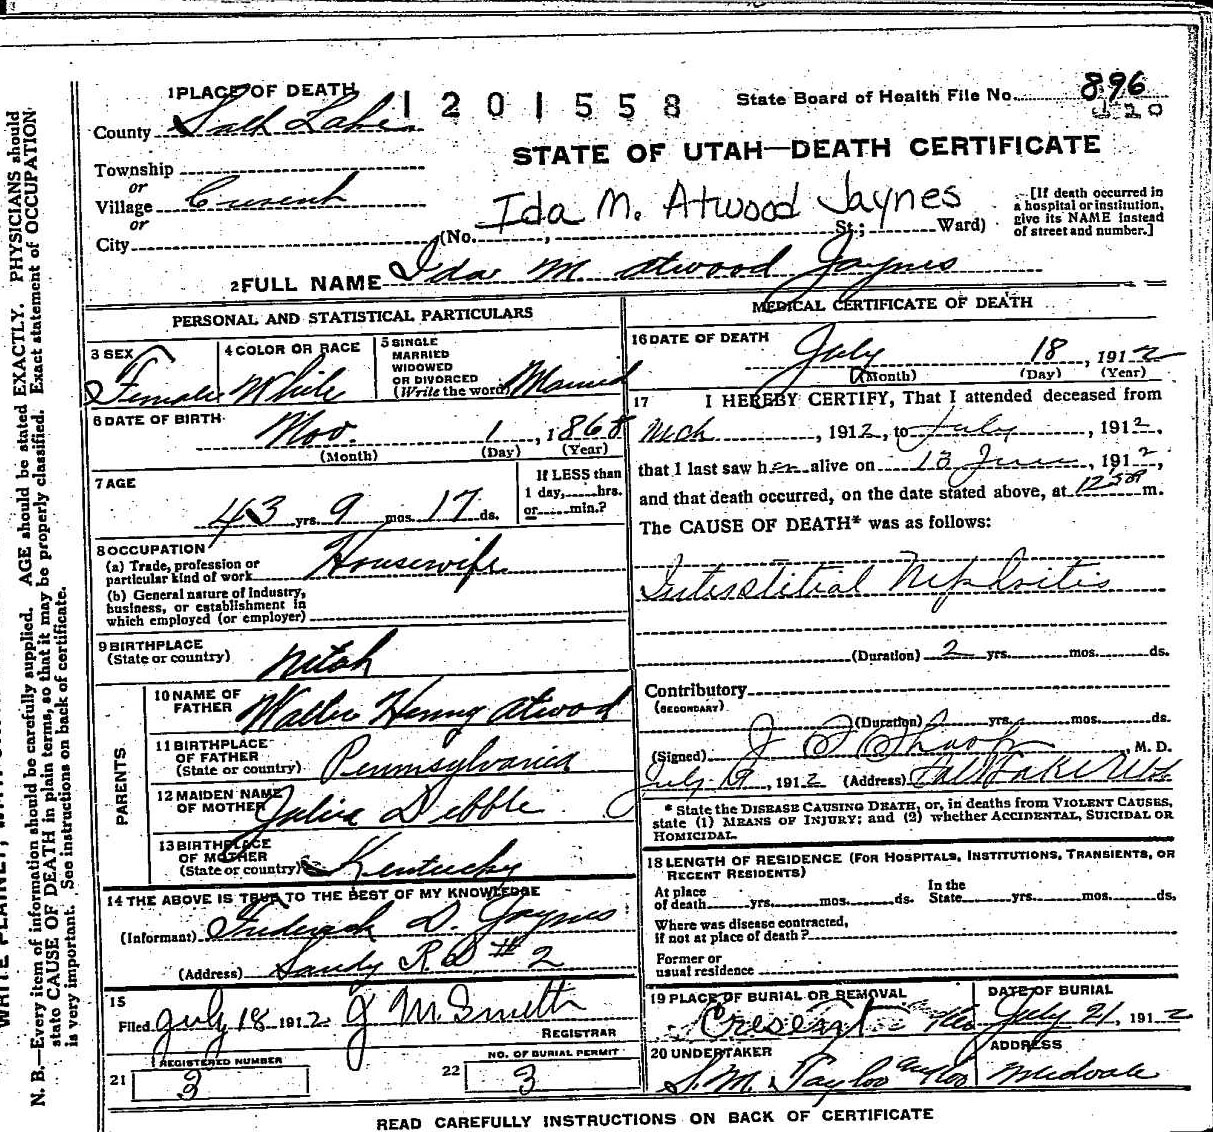 1 PLACE OF DEATH
1201558
State Board of Health File No. 896
County Salt Lake
STATE OF UTAH—DEATH CERTIFICATE
Township
or
Village Cresent
or
City
Ida M. Atwood Jaynes
(No. , St.; Ward)
[If death occurred in
a hospital or institution,
give its NAME instead
of street and number.]
2 FULL NAME Ida M Atwood Jaynes
PERSONAL AND STATISTICAL PARTICULARS
3 SEX
Female
4 COLOR OR RACE
White
5 SINGLE
MARRIED
WIDOWED
OR DIVORCED
(Write the word) Married
6 DATE OF BIRTH
Nov. 1, 1868
(Month) (Day) (Year)
7 AGE
43 yrs. 9 mos. 17 ds.
If LESS than
1 day, hrs.
or min.?
8 OCCUPATION
(a) Trade, profession or
particular kind of work Housewife
(b) General nature of Industry,
business, or establishment in
which employed (or employer)
9 BIRTHPLACE
(State or country) Utah
PARENTS
10 NAME OF
FATHER Henry Atwood
11 BIRTHPLACE
OF FATHER
(State or country) Pennsylvania
12 MAIDEN NAME
OF MOTHER Julia Debble
13 BIRTHPLACE
OF MOTHER
(State or country) Kentucky
14 THE ABOVE IS TRUE TO THE BEST OF MY KNOWLEDGE
(Informant) Frederick D. Jaynes
(Address) Sandy R D #2
15
Filed July 18 1912 J M Smith
REGISTRAR
REGISTERED NUMBER
21 3
NO. OF BURIAL PERMIT
22 3
MEDICAL CERTIFICATE OF DEATH
16 DATE OF DEATH
July 18, 1912
(Month) (Day) (Year)
17 I HEREBY CERTIFY, That I attended deceased from
Mch, 1912, to July, 1912,
that I last saw her alive on 13 June, 1912,
and that death occurred, on the date stated above, at m.
The CAUSE OF DEATH* was as follows:
Interstitial Nephritis
(Duration) 2 yrs. mos. ds.
Contributory
(SECONDARY)
(Duration) yrs. mos. ds.
(Signed) , M. D.
July , 1912 (Address) Salt Lake
* State the DISEASE CAUSING DEATH, or, in deaths from VIOLENT CAUSES,
state (1) MEANS OF INJURY; and (2) whether ACCIDENTAL, SUICIDAL OR
HOMICIDAL.
18 LENGTH OF RESIDENCE (FOR HOSPITALS, INSTITUTIONS, TRANSIENTS, OR
RECENT RESIDENTS)
At place
of death yrs. mos. ds.
In the
State yrs. mos. ds.
Where was disease contracted,
if not at place of death?
Former or
usual residence
19 PLACE OF BURIAL OR REMOVAL
Cresent
DATE OF BURIAL
July 21, 1912
20 UNDERTAKER
S. M. Taylor
ADDRESS
Midvale
READ CAREFULLY INSTRUCTIONS ON BACK OF CERTIFICATE
N. B.—Every item of information should be carefully supplied. AGE should be stated EXACTLY. PHYSICIANS should
state CAUSE OF DEATH in plain terms, so that it may be properly classified. Exact statement of OCCUPATION
is very important. See instructions on back of certificate.